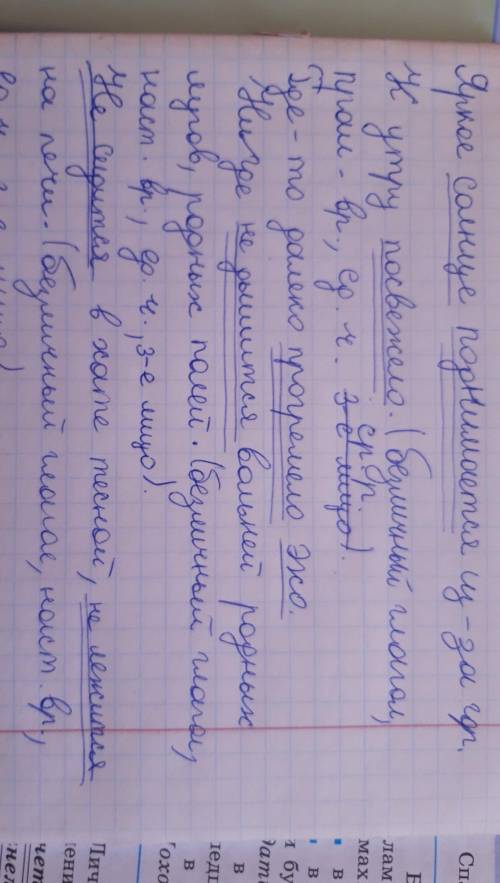 Яркое солнце поднимается из-за гор.
К утру посвежело. (безличный глагол,
прош. вр., ед. ч. 3-е лицо).
ср. р.
Где-то далеко прогремело эхо.
Нигде не дышится вольней родных
лугов, родных полей. (безличный глагол,
наст. вр., ед. ч., 3-е лицо).
Не сидится в хате тесной, не лежится
на печи. (безличный глагол, наст. вр.,